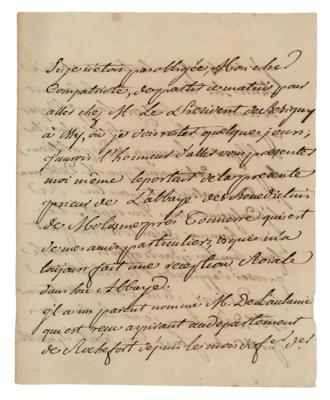 Si je n'etois pas obligée, Mon cher
Compatriote, de partir ce matin, pour
aller chez M. Le President de
à où je dois rester quelques jours;
j'aurois l'honneur d'aller vous presenter
moi même le porteur de la presente
prieur de L'abbaye des Benedictins
de Molosme près Tonnerre qui est
de mes amis particuliers, et qui m'a
toujours fait une reception Roiale
dans son Abbaye.
il a un parent nommé M. De Laulanie
qui est reçu aspirant au departement
de Rochefort depuis le mois de